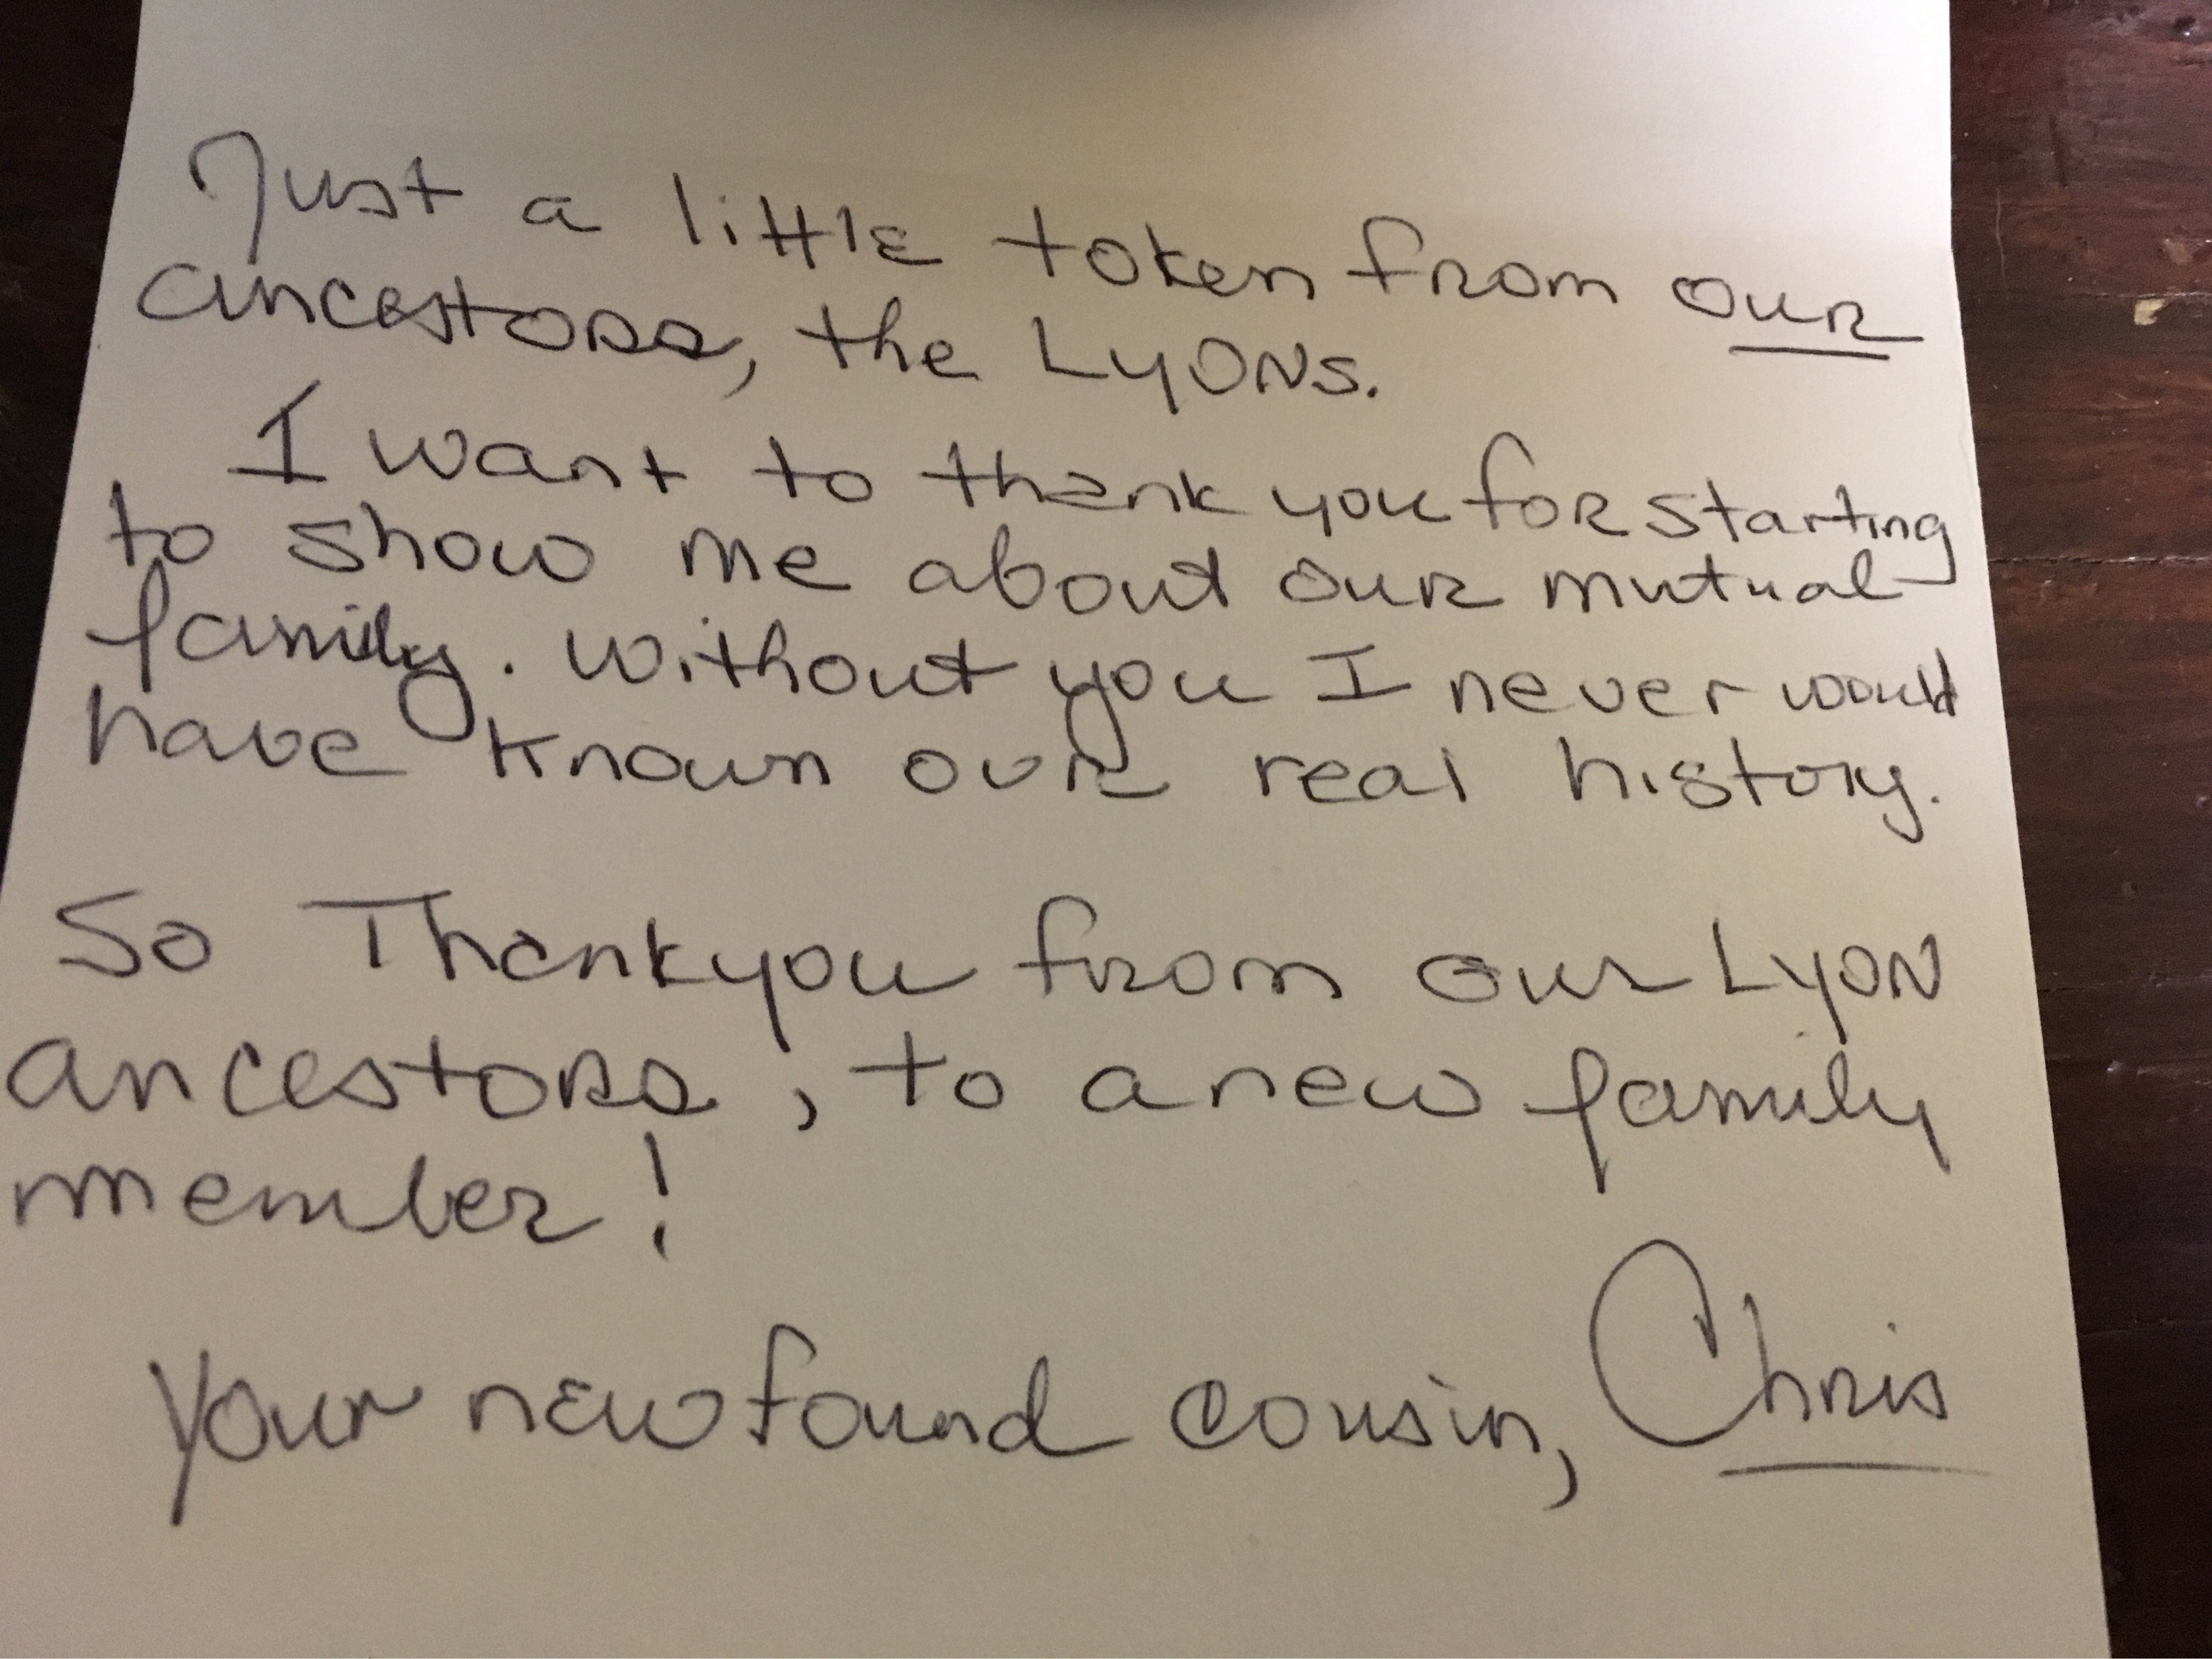 Just a little token from our
ancestors, the Lyons.
I want to thank you for starting
to show me about our mutual
family. Without you I never would
have known our real history.
So Thankyou from our Lyon
ancestors, to a new family
member!
Your newfound cousin, Chris